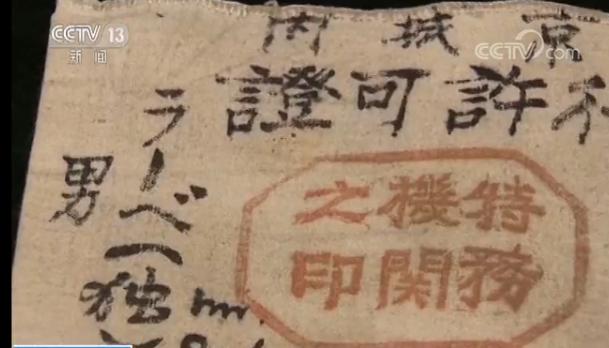 CCTV 13
新闻
CCTV.com
京城内
許可證
特務
機関
之印
ラーベ
独
男